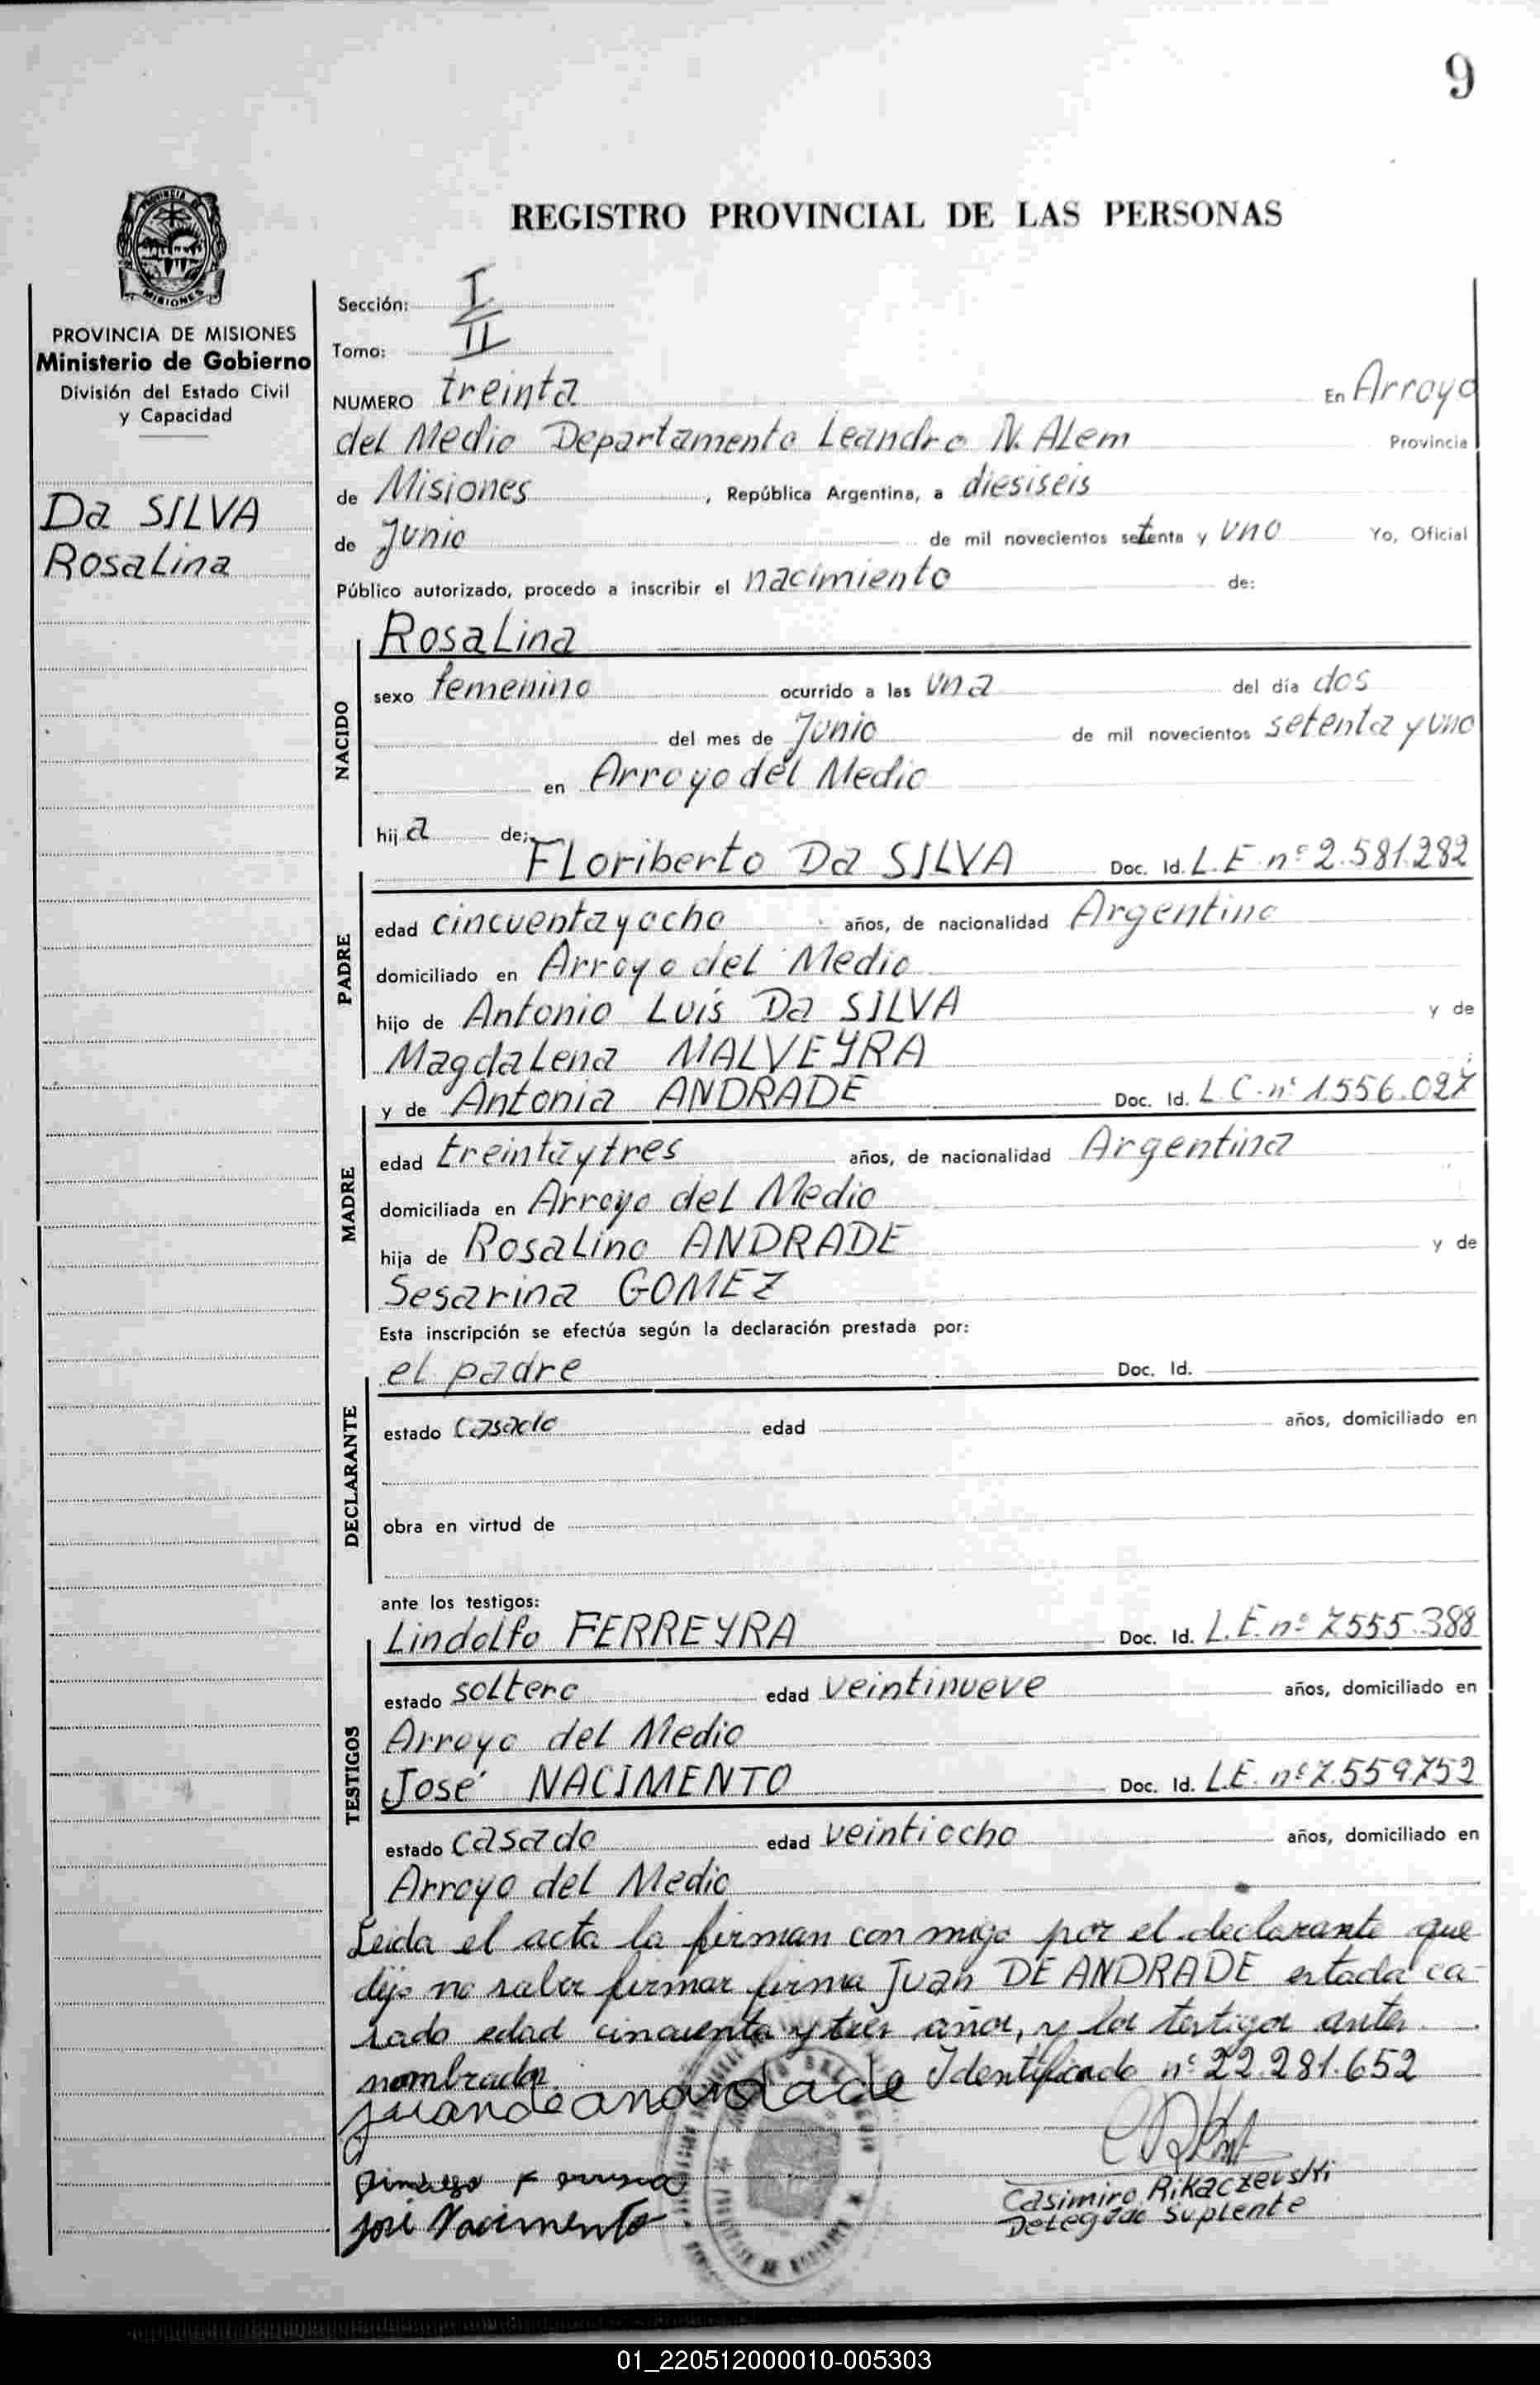 9
REGISTRO PROVINCIAL DE LAS PERSONAS
PROVINCIA DE
MISIONES
PROVINCIA DE MISIONES
Ministerio de Gobierno
División del Estado Civil
y Capacidad
Da SILVA
Rosalina
Sección: I
Tomo: II
NUMERO treinta En Arroyo
del Medio Departamento Leandro N. Alem Provincia
de Misiones, República Argentina, a diesiseis
de Junio de mil novecientos setenta y uno Yo, Oficial
Público autorizado, procedo a inscribir el nacimiento de:
NACIDO
Rosalina
sexo femenino ocurrido a las una del día dos
del mes de Junio de mil novecientos setenta y uno
en Arroyo del Medio
hija de:
PADRE
Floriberto Da SILVA Doc. Id. L.E nº 2.581.282
edad cincuenta y ocho años, de nacionalidad Argentino
domiciliado en Arroyo del Medio
hijo de Antonio Luís Da SILVA y de
Magdalena MALVEYRA
MADRE
y de Antonia ANDRADE Doc. Id. L.C. nº 1.556.027
edad treinta y tres años, de nacionalidad Argentina
domiciliada en Arroyo del Medio
hija de Rosalino ANDRADE y de
Sesarina GOMEZ
Esta inscripción se efectúa según la declaración prestada por:
DECLARANTE
el padre Doc. Id.
estado casado edad años, domiciliado en
obra en virtud de
ante los testigos:
TESTIGOS
Lindolfo FERREYRA Doc. Id. L.E. nº 7.555.388
estado soltero edad veintinueve años, domiciliado en
Arroyo del Medio
José NACIMENTO Doc. Id. L.E. nº 7.559.752
estado casado edad veintiocho años, domiciliado en
Arroyo del Medio
Leida el acta la firman con migo por el declarante que
dijo no saber firmar firma Juan DE ANDRADE estado ca-
sado edad cincuenta y tres años, y los testigos antes
nombrados. Identificado nº 22.281.652
juan de andrade
José Nacimento
Casimiro Rikaczevski
Delegado Suplente
01_220512000010-005303